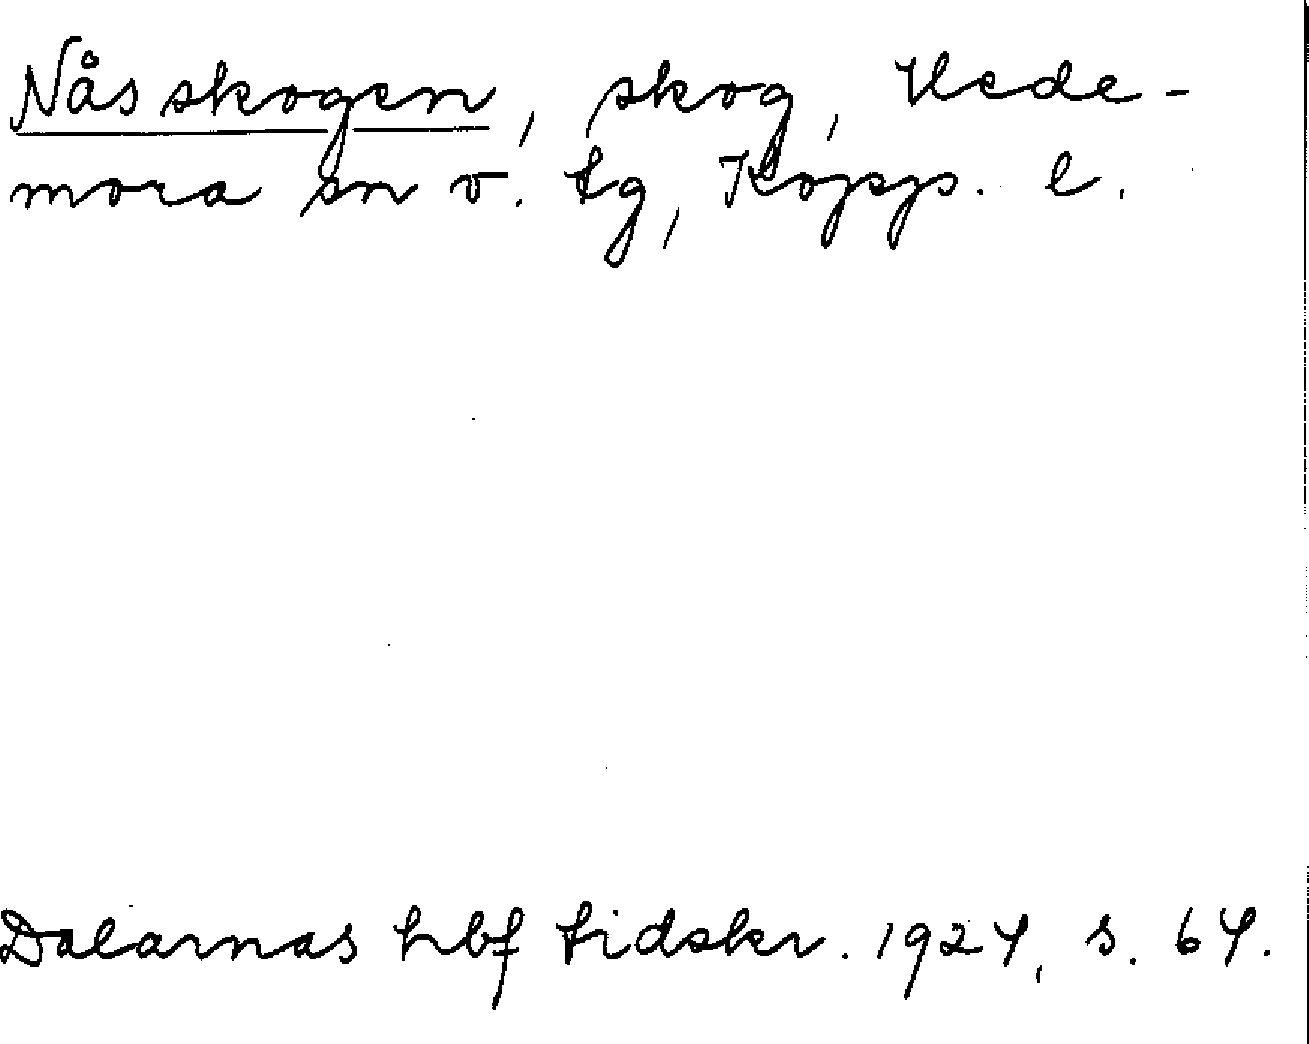 Nåsskogen, skog, Vede-
mora sn o. tg, Kopp. l.
Dalarnas hbf tidskr. 1924, s. 64.